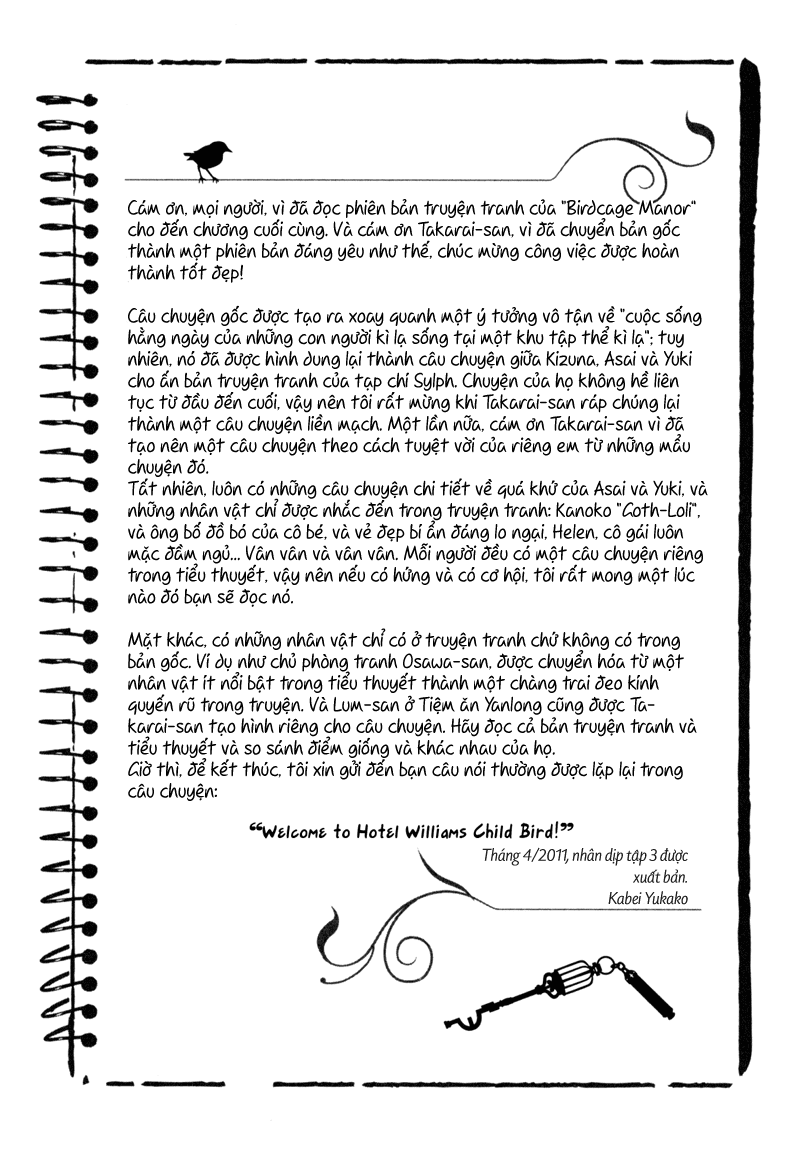 Cám ơn, mọi người, vì đã đọc phiên bản truyện tranh của "Birdcage Manor"
cho đến chương cuối cùng. Và cám ơn Takarai-san, vì đã chuyển bản gốc
thành một phiên bản đáng yêu như thế, chúc mừng công việc được hoàn
thành tốt đẹp!
Câu chuyện gốc được tạo ra xoay quanh một ý tưởng vô tận về "cuộc sống
hằng ngày của những con người kì lạ sống tại một khu tập thể kì lạ"; tuy
nhiên, nó đã được hình dung lại thành câu chuyện giữa Kizuna, Asai và Yuki
cho ấn bản truyện tranh của tạp chí Sylph. Chuyện của họ không hề liên
tục từ đầu đến cuối, vậy nên tôi rất mừng khi Takarai-san ráp chúng lại
thành một câu chuyện liền mạch. Một lần nữa, cám ơn Takarai-san vì đã
tạo nên một câu chuyện theo cách tuyệt vời của riêng em từ những mẩu
chuyện đó.
Tất nhiên, luôn có những câu chuyện chi tiết về quá khứ của Asai và Yuki, và
những nhân vật chỉ được nhắc đến trong truyện tranh: Kanoko "Goth-Loli",
và ông bố đồ bó của cô bé, và vẻ đẹp bí ẩn đáng lo ngại, Helen, cô gái luôn
mặc đầm ngủ... Vân vân và vân vân. Mỗi người đều có một câu chuyện riêng
trong tiểu thuyết, vậy nên nếu có hứng và có cơ hội, tôi rất mong một lúc
nào đó bạn sẽ đọc nó.
Mặt khác, có những nhân vật chỉ có ở truyện tranh chứ không có trong
bản gốc. Ví dụ như chủ phòng tranh Osawa-san, được chuyển hóa từ một
nhân vật ít nổi bật trong tiểu thuyết thành một chàng trai đeo kính
quyến rũ trong truyện. Và Lum-san ở Tiệm ăn Yanlong cũng được Ta-
karai-san tạo hình riêng cho câu chuyện. Hãy đọc cả bản truyện tranh và
tiểu thuyết và so sánh điểm giống và khác nhau của họ.
Giờ thì, để kết thúc, tôi xin gửi đến bạn câu nói thường được lặp lại trong
câu chuyện:
"Welcome to Hotel Williams Child Bird!"
Tháng 4/2011, nhân dịp tập 3 được
xuất bản.
Kabei Yukako